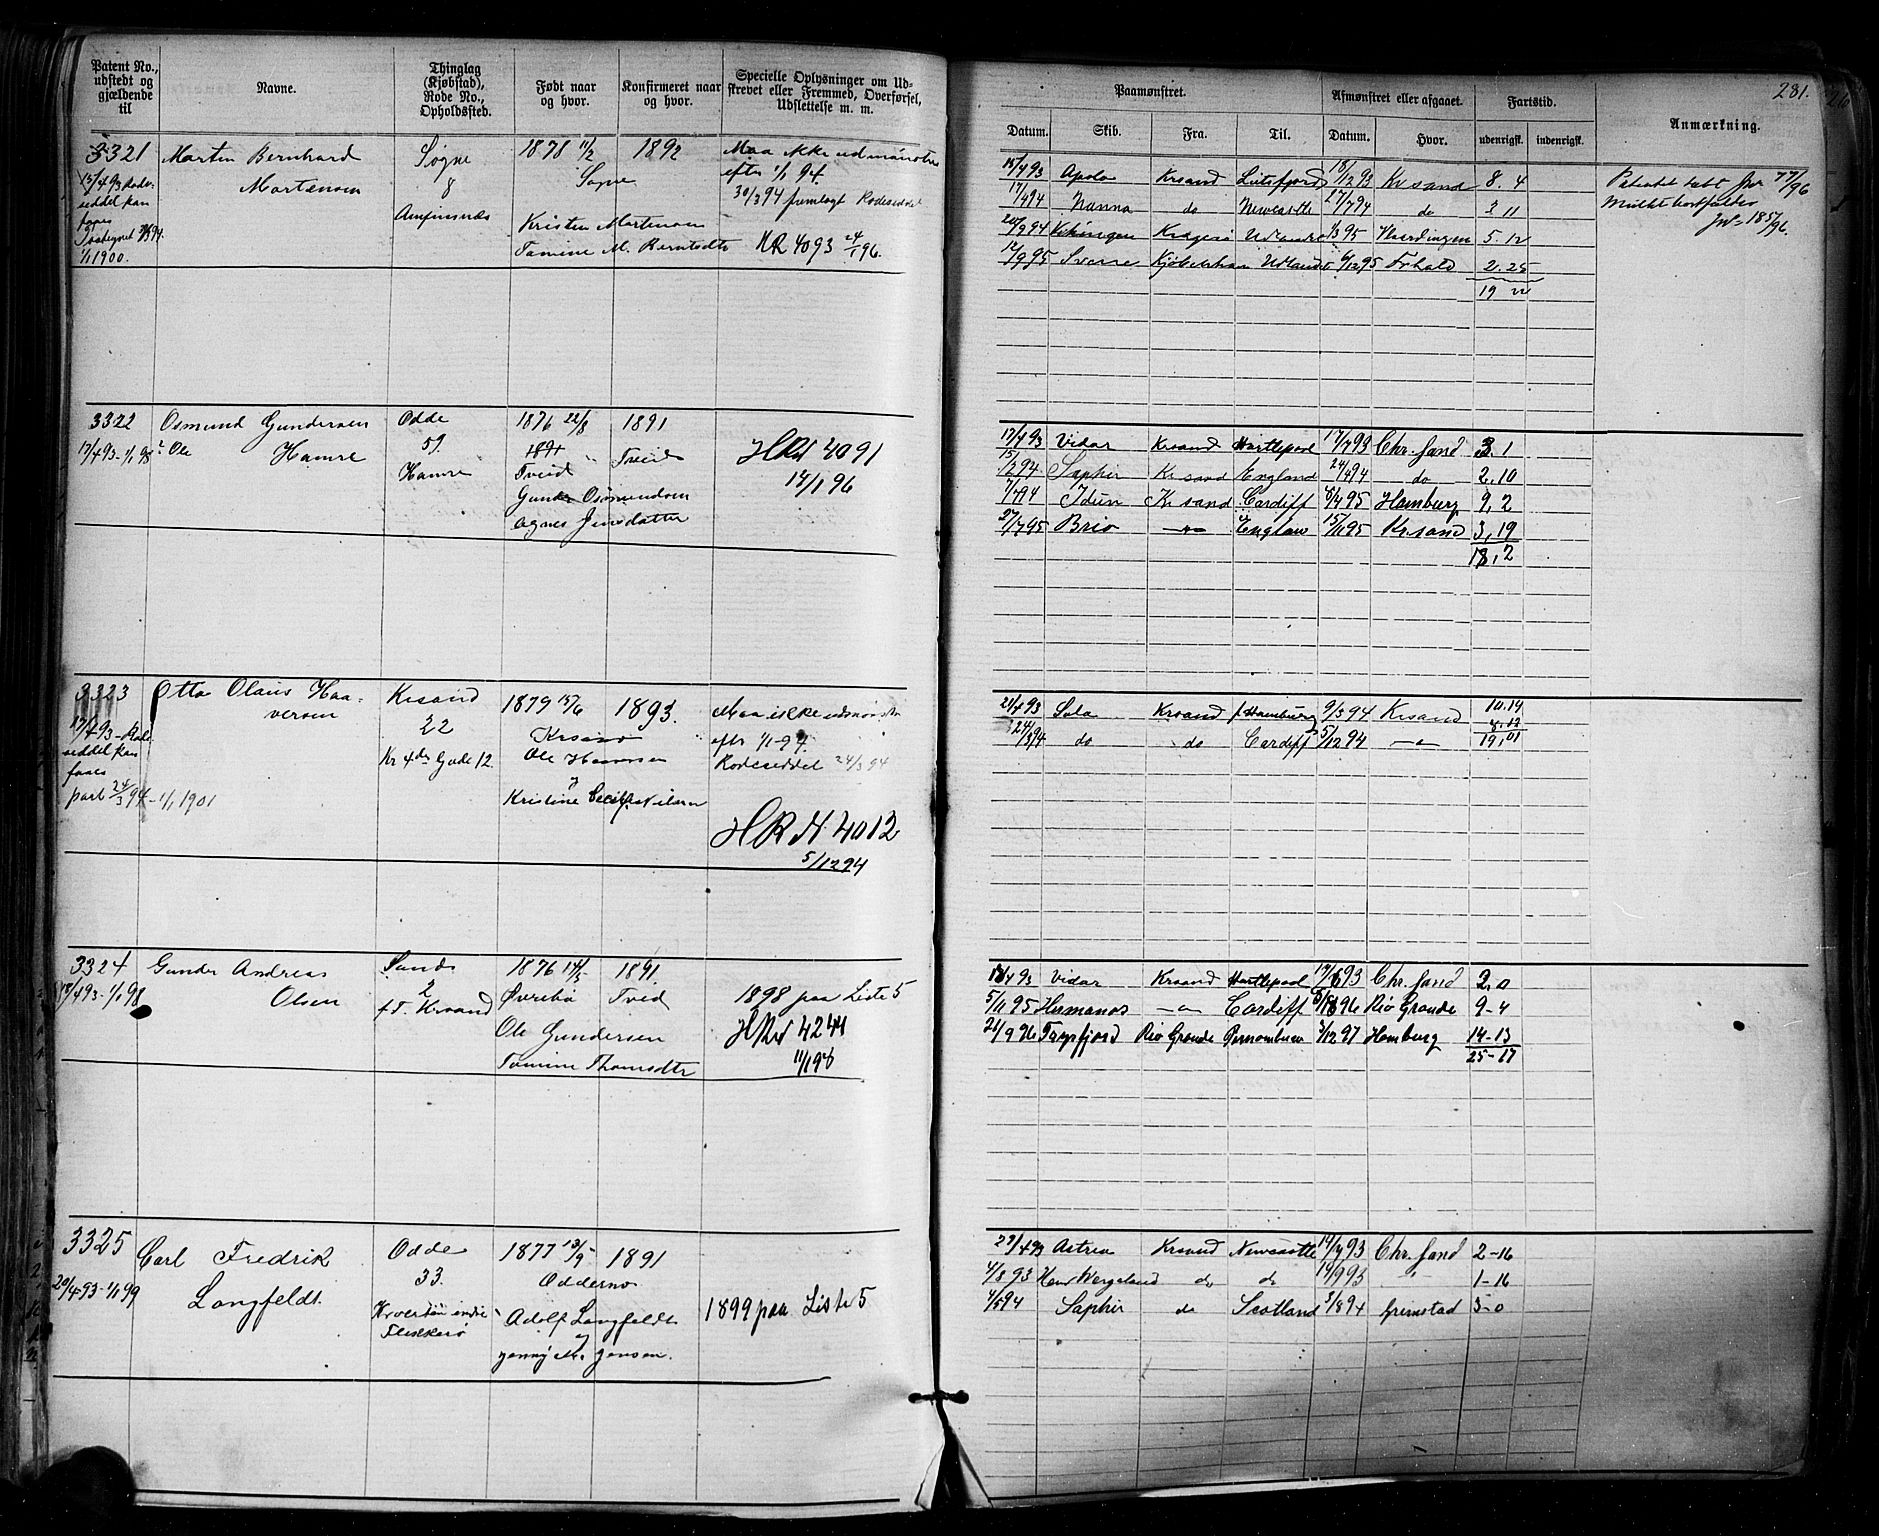 Patent No., udstedt og gjældende til
Navne.
Thinglag (Kjøbstad), Rode No., Opholdssted.
Født naar og hvor.
Konfirmeret naar og hvor.
Specielle Oplysninger om Udskrevet eller Fremmed, Overførsel, Udslettelse m. m.
Paamønstret.
Afmønstret eller afgaaet.
Fartstid.
Anmærkning.
231.
Datum.
Skib.
Fra.
Til.
Datum.
Hvor.
udenrigsk.
indenrigsk.
3321
Morten Bernhard
Mortensen
15/4 93 Rode-
seddel kan
faaes
1/1 1900.
Søgne
8
1878 11/2
Søgne
1892
Kristen Mortensen
Tomine M. Berntsdtr
Maa ikke udmönstres
efter 1/1 94.
30/3 94 fremlagt Rodeseddel
HR 4093 24/1 96.
15/4 93 Apolo Krsand 18/12 93 Krsand 8. 4
17/4 94 Nanna do Newcastle 27/7 94 do 3 11
20/9 94 Vikingen Kragerö Udlandet 1/3 95 5. 12
12/9 95 Sverre Kjöbenhavn Udlandet 6/12 95 Frhald 2. 25
19 22
Patentet tabt jnr 77/96
Mulkt bortfaldes
jnr 185/96.
3322
17/4 93-1/1 98
Osmund Gundersen
Ole Hamre
Odde
59.
Hamre
1876 22/8
1891
Tveid
1891
Tveid
Gunder Osmundsen
Agnes Jensdatter
HRN 4091
14/1 96
17/4 93 Vidar Krsand Hartlepool 17/7 93 Chr. sand 3 1
15/2 94 Saphir Krsand England 24/4 94 do 2. 10
7/7 94 Idun Krsand Cardiff 8/4 95 Hamburg 9, 2
27/7 95 Brio England 15/11 95 Krsand 3, 19
18, 2
3323
17/4 93 - Rode
seddel kan
faaes
part 24/3 94 - 1/1 1901
Otto Olaus Haa-
versen
Krsand
22
Kr 4de Gade 12.
1879 15/6
Krsand
1893.
Ole Haaversen
og
Kristine Nilsen
Maa ikke udmönstres
efter 1/1-94.
Rodeseddel 24/3 94
HRN. 4012
5/12 94
21/4 93 Sola Krsand Hamburg 9/3 94 Krsand 10. 19
24/3 94 do do Cardiff 5/12 94 8. 12
19, 01
3324
18/4 93-1/1 98
Gunder Andreas
Olsen
Sands
2
f. T. Krsand
1876 14/5
Øvrebö
1891
Tveid
Ole Gundersen
Tomine Thomsdtr
1898 paa Liste 5
HRN 4244
11/1 98
18/4 93 Vidar Krsand Hartlepool 93 Chr. sand 2, 0
5/11 95 Hermanos Cardiff 96 Rio Grande 9-4
21/9 96 Rio Grande Pernambuco 3/12 97 Hamburg 14-13
25-17
3325
20/4 93-1/1 99
Carl Fredrik
Langfeldt.
Odde
33.
indre
Flekkerö
1877 13/5
Oddernes
1891
Adolf Langfeldt
og
Jenny M. Jensen.
1899 paa Liste 5
29/4 93 Astrea Krsand Newcastle 14/7 93 Chr. sand 2-16
4/8 93 Hen. Wergeland do do 19/9 93 " 1-16
4/5 94 Saphir do Scotland 3/8 94 Grimstad 3-0